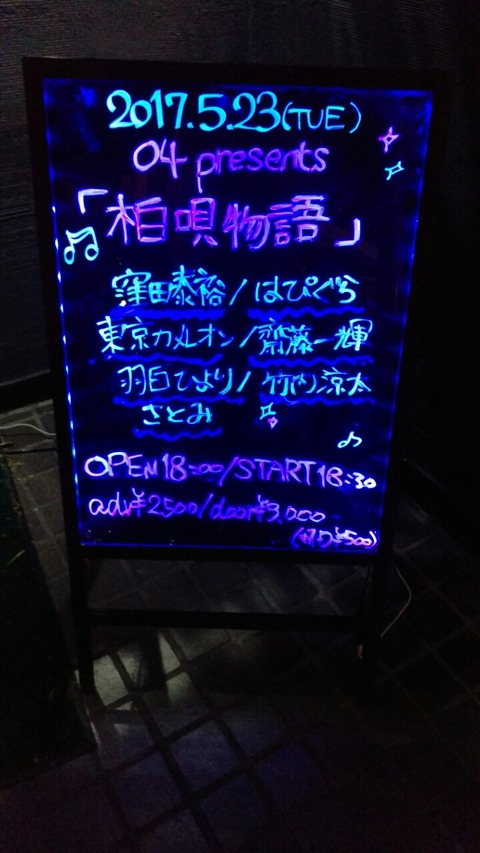 2017.5.23(TUE)
04 presents
「柏唄物語」
窪田泰裕/はぴぐら
東京カメレオン/齋藤一輝
羽白ひより/竹内涼太
さとみ
OPEN18:00/START18:30
adv¥2500/door¥3,000
(¥500)